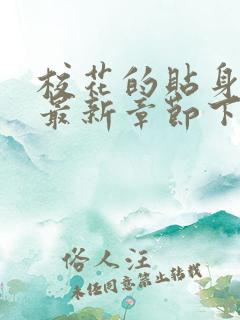 校花的贴身
最新章节下
俗人汪
未任同意禁止转载